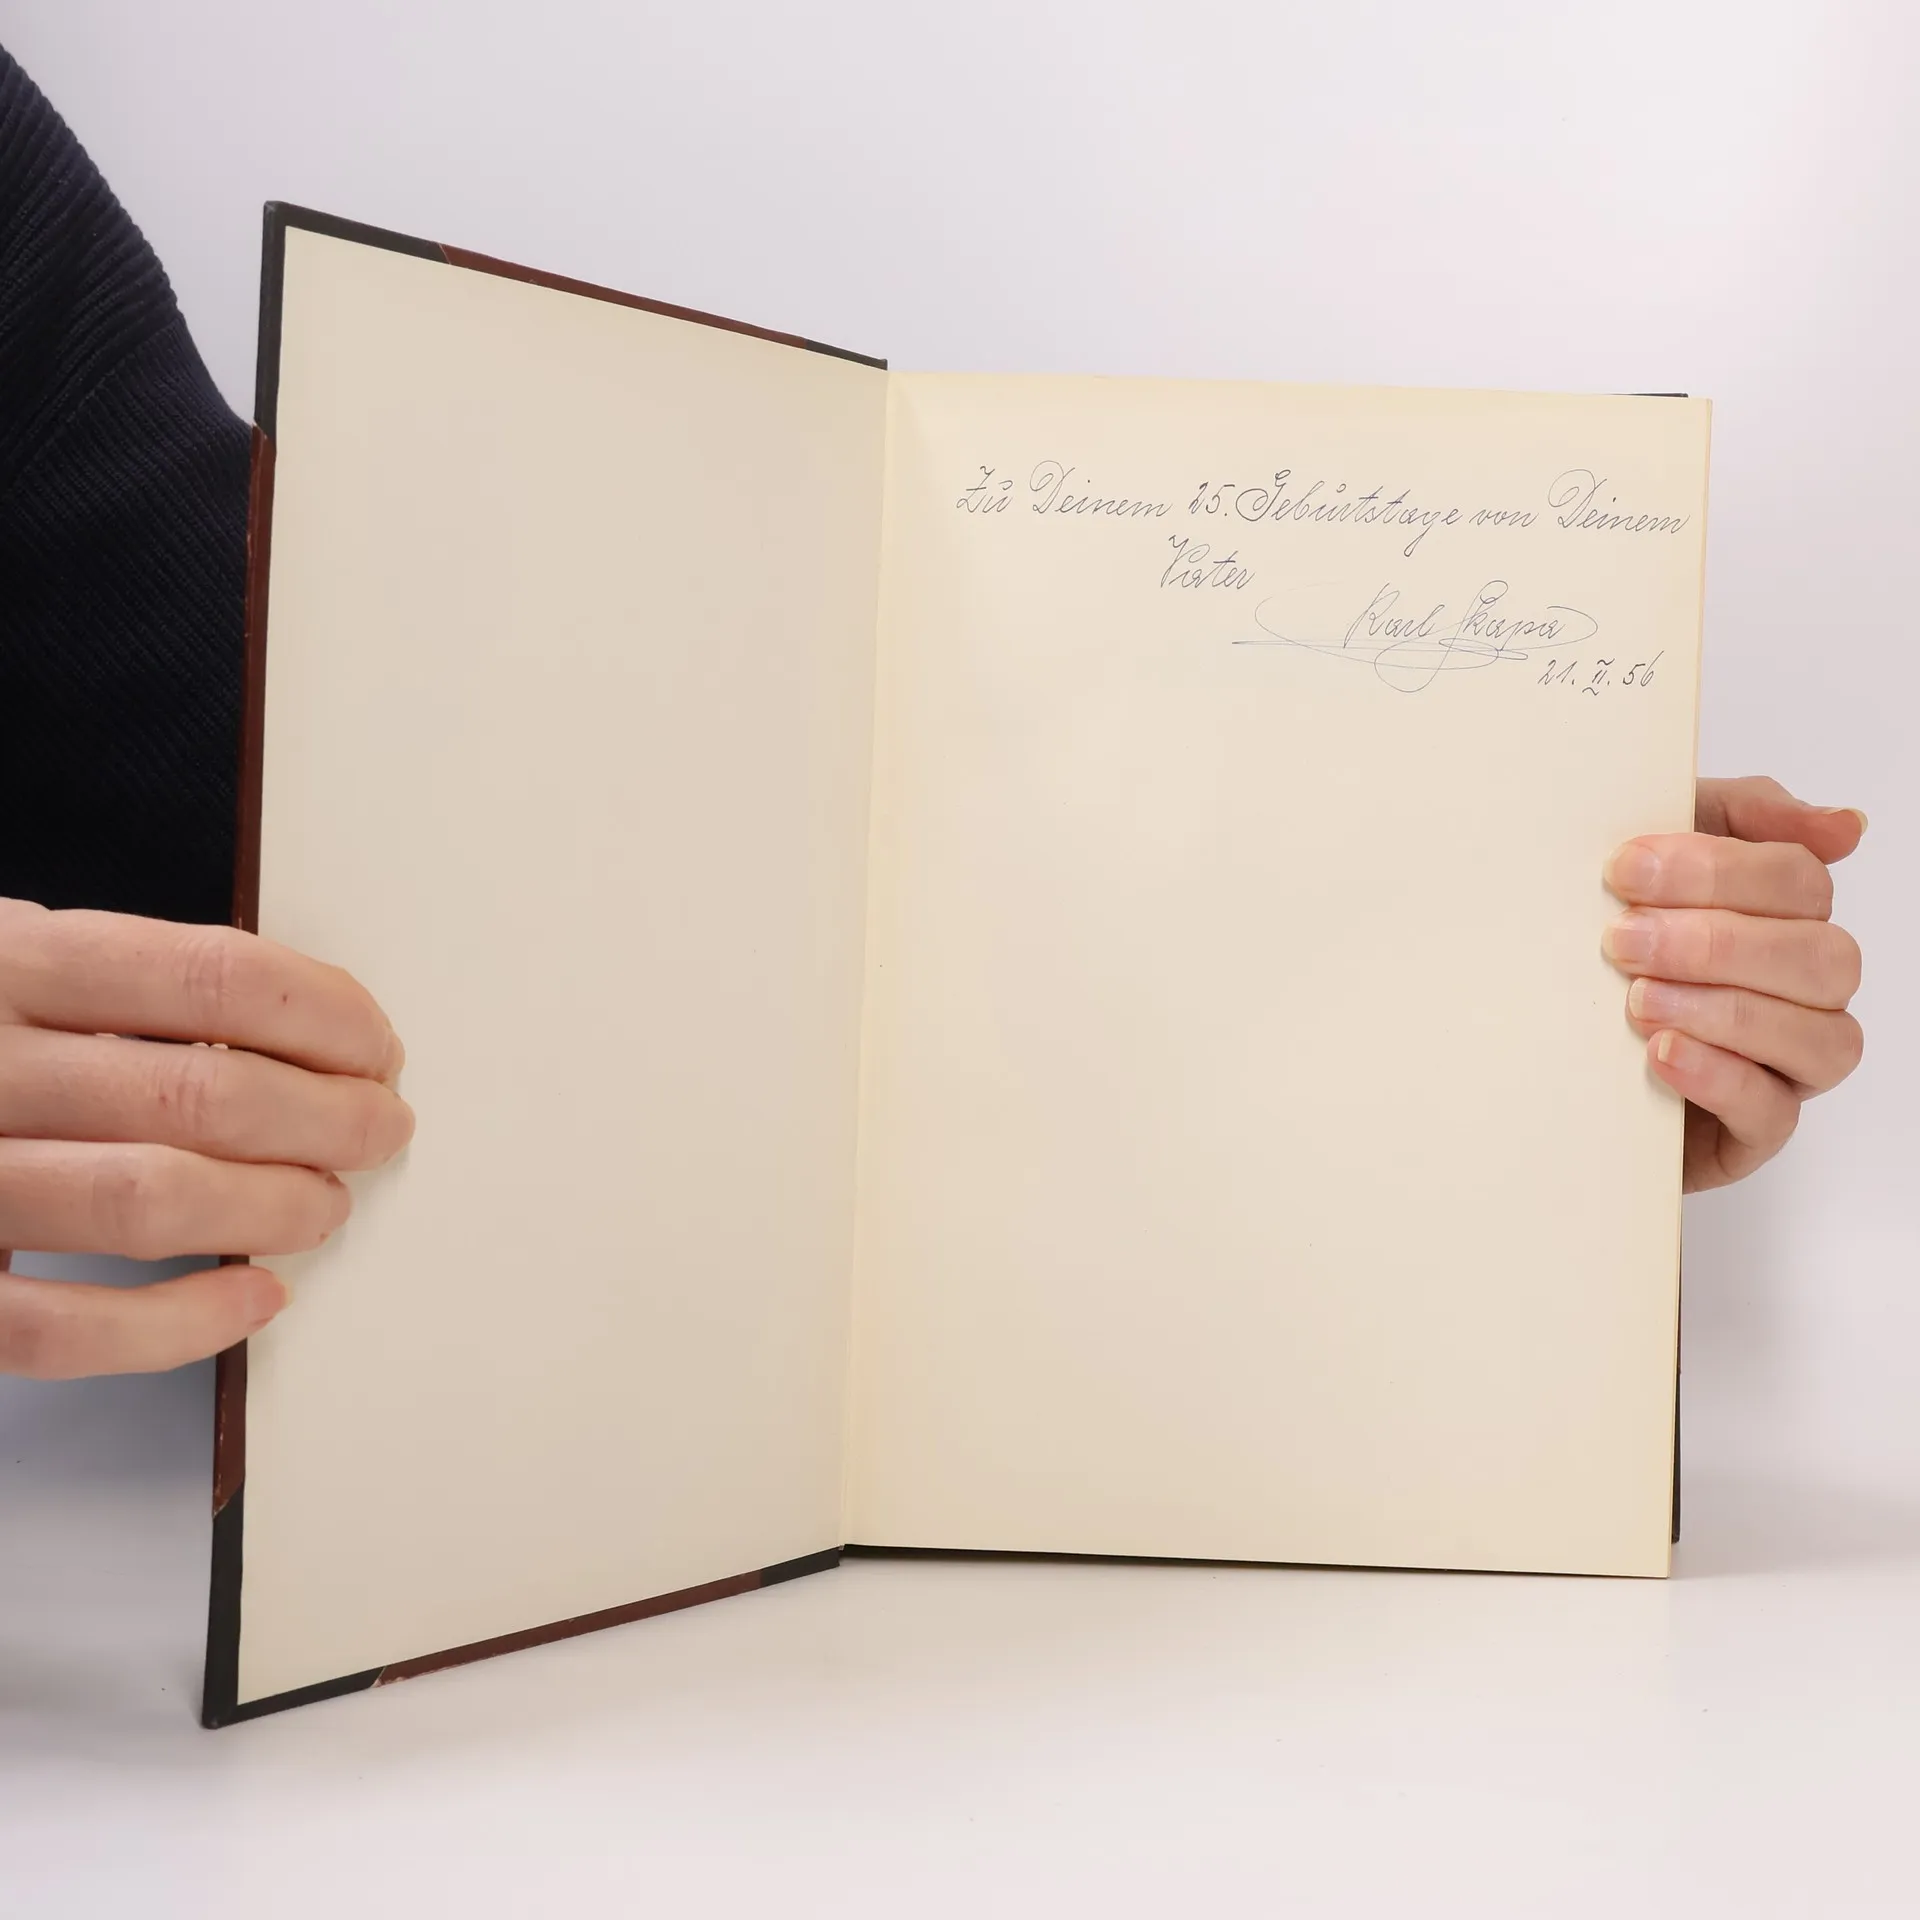 Zu Deinem 25. Geburtstage von Deinem
Vater
Karl Skapa
21. II. 56